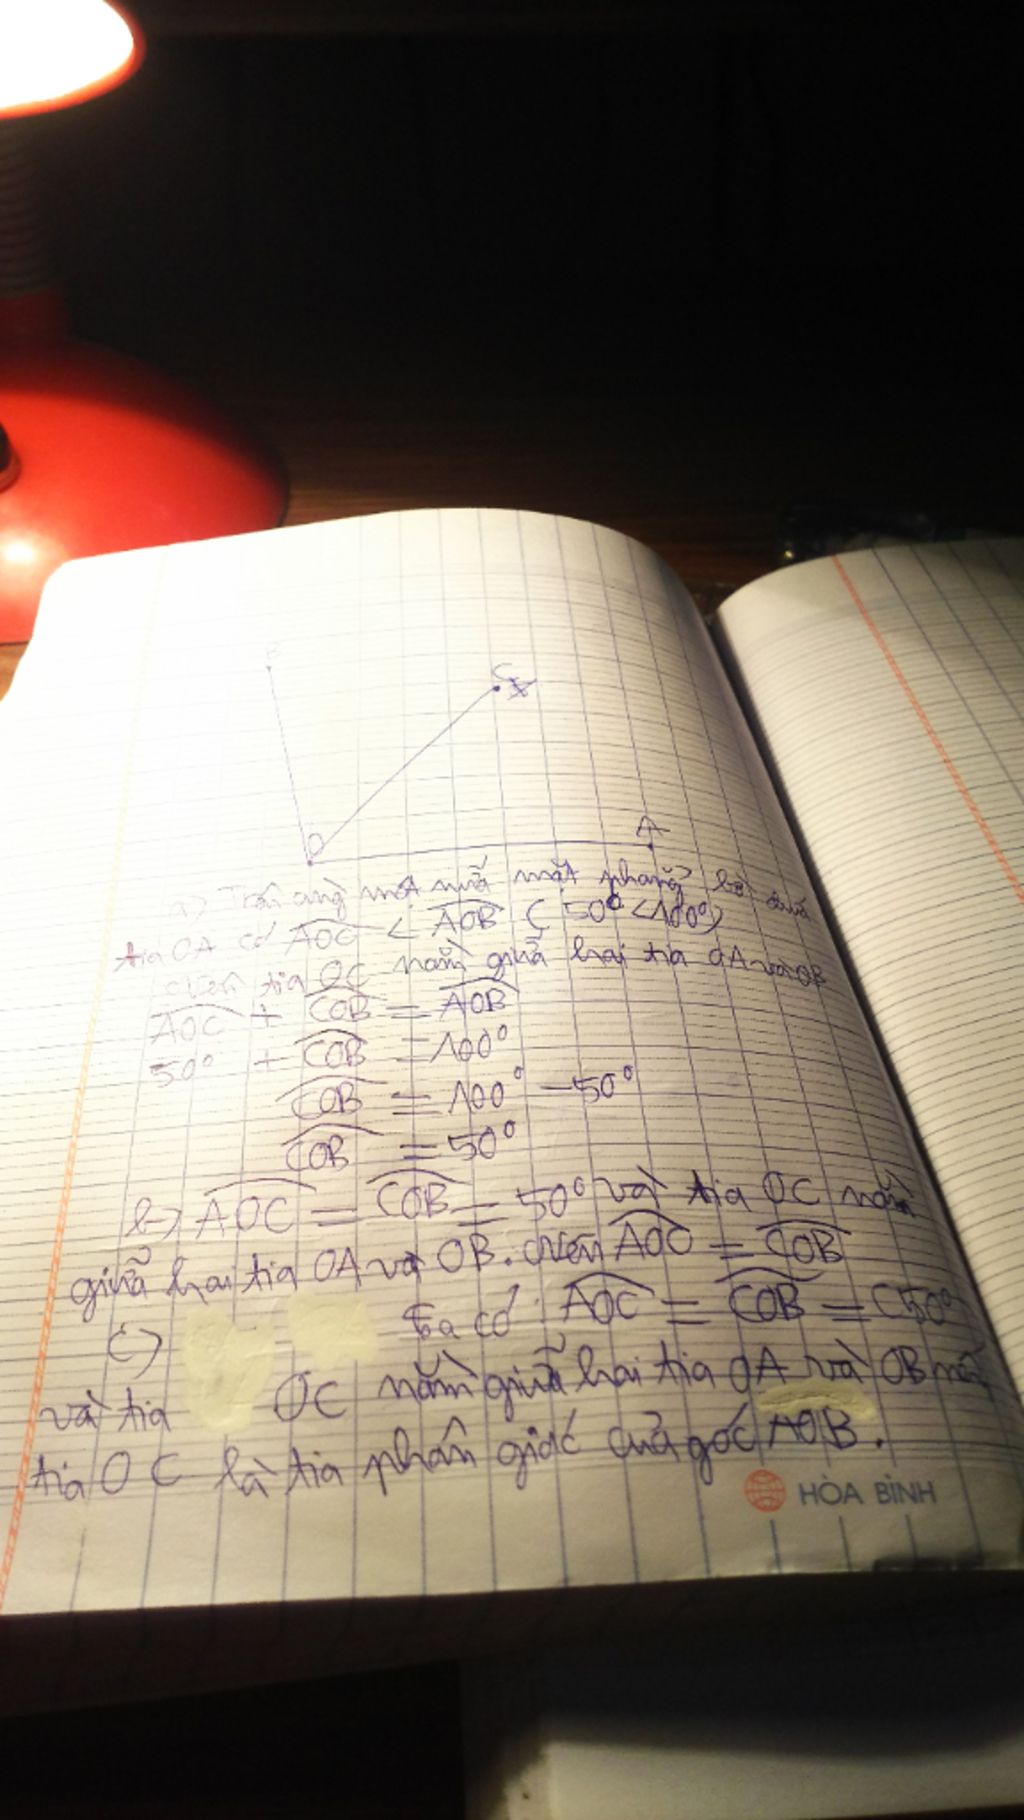 B
C
O
A
a) Trên cùng một nửa mặt phẳng bờ chứa
tia OA có AOC < AOB ( 50° < 100°)
nên tia OC nằm giữa hai tia OA và OB
AOC + COB = AOB
50° + COB = 100°
COB = 100° - 50°
COB = 50°
b) AOC = COB = 50° và tia OC nằm
giữa hai tia OA và OB. nên AOC = COB
c) Ta có: AOC = COB = (50°
và tia OC nằm giữa hai tia OA và OB nên
tia OC là tia phân giác của góc AOB.
HÒA BÌNH